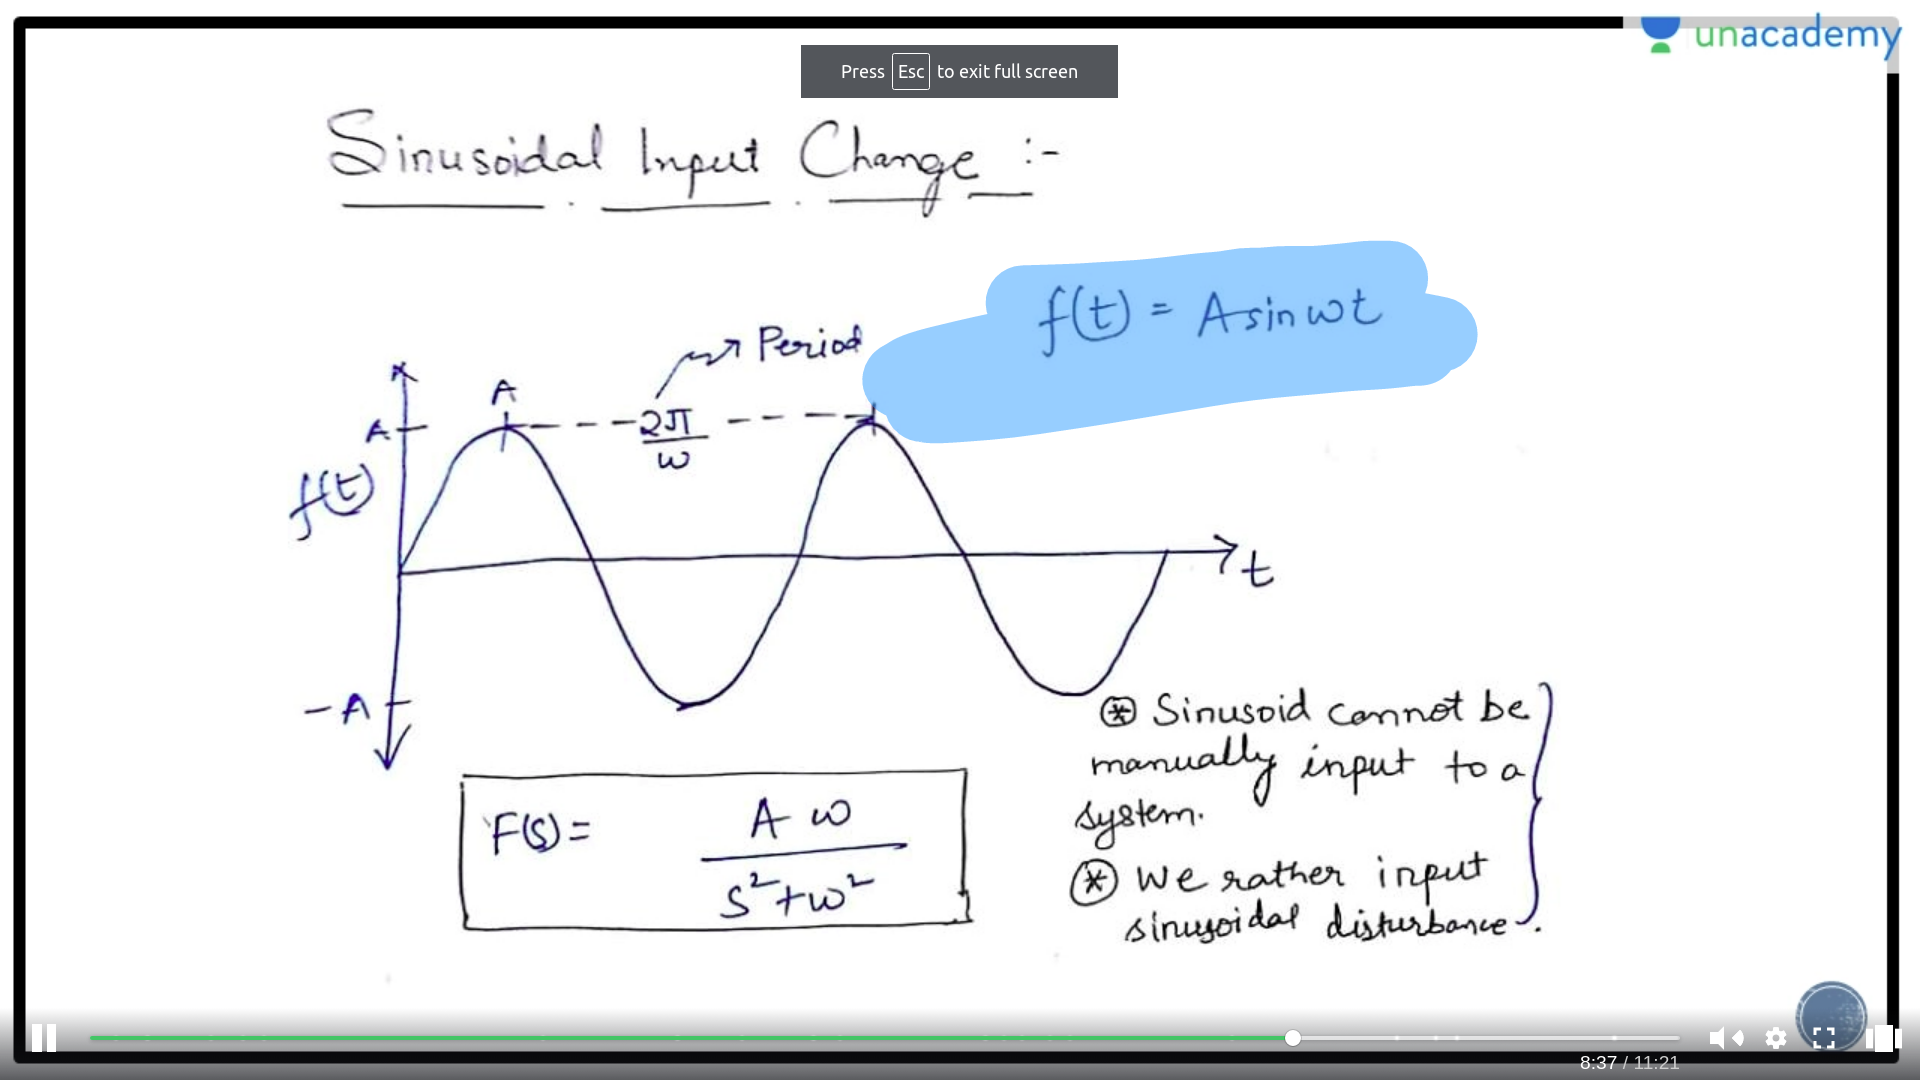 unacademy
Press Esc to exit full screen
Sinusoidal Input Change :-
f(t) = A sin ωt
Period
A
A
2π
ω
f(t)
t
-A
⊛ Sinusoid cannot be
manually input to a
system.
⊛ We rather input
sinusoidal disturbance.
F(s) = A ω
s²+ω²
8:37 / 11:21